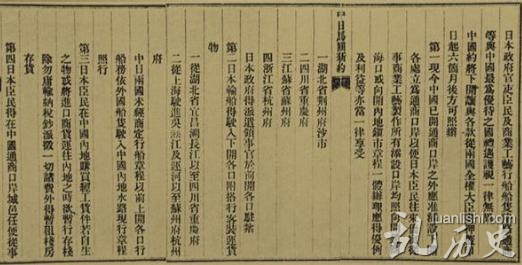 日本政府官吏臣民及商業工藝行船船隻陸路通商
等與中國最為優待之國禮遇護視一律無異
中國約將下開讓與各款從兩國全權大臣
日起六個月後方可照辦
第一現今中國已開通商口岸之外應准添設
各處立為通商口岸以便日本臣民往來
事商業工藝製作所有添設口岸均照
海口或向開內地鎮市章程一體辦理應得優例
及利益等亦當一律享受
中日馬關新約
一湖北省荊州府沙市
二四川省重慶府
三江蘇省蘇州府
四浙江省杭州府
日本政府得派遣領事官於前開各口駐紮
第二日本輪船得駛入下開各口附搭行客裝運貨
物
一從湖北省宜昌溯長江以至四川省重慶府
二從上海駛進吳淞江及運河以至蘇州府杭州
府
中日兩國未經商定行船章程以前上開各口行
船務依外國船隻駛入中國內地水路現行章程
照行
第三日本臣民在中國內地購買經工貨件若自生
之物或將進口商貨運往內地之時欲暫行存棧
除勿庸輸納稅鈔派徵一切諸費外得暫租棧房
存貨
第四日本臣民得在中國通商口岸城邑任便從事
luanlishi.com
乱历史